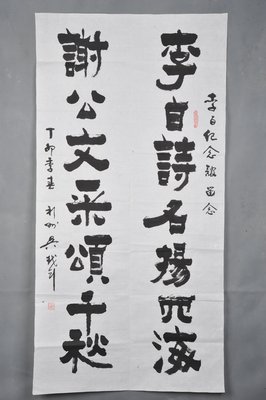 李白紀念館留念
李白詩名揚四海
謝公文采頌千秋
丁卯季春